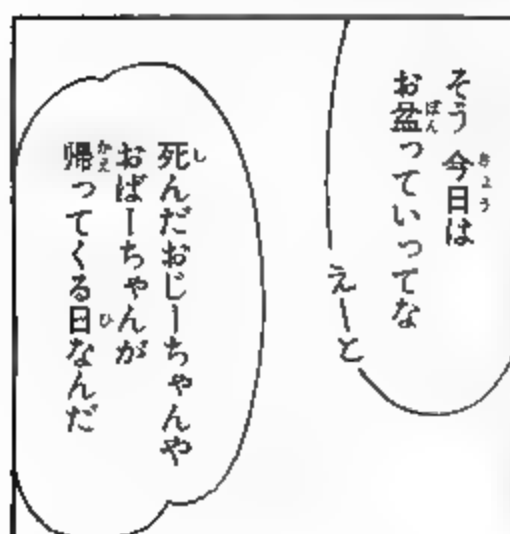 そう 今日は
お盆っていってな
えーと
死んだおじーちゃんや
おばーちゃんが
帰ってくる日なんだ